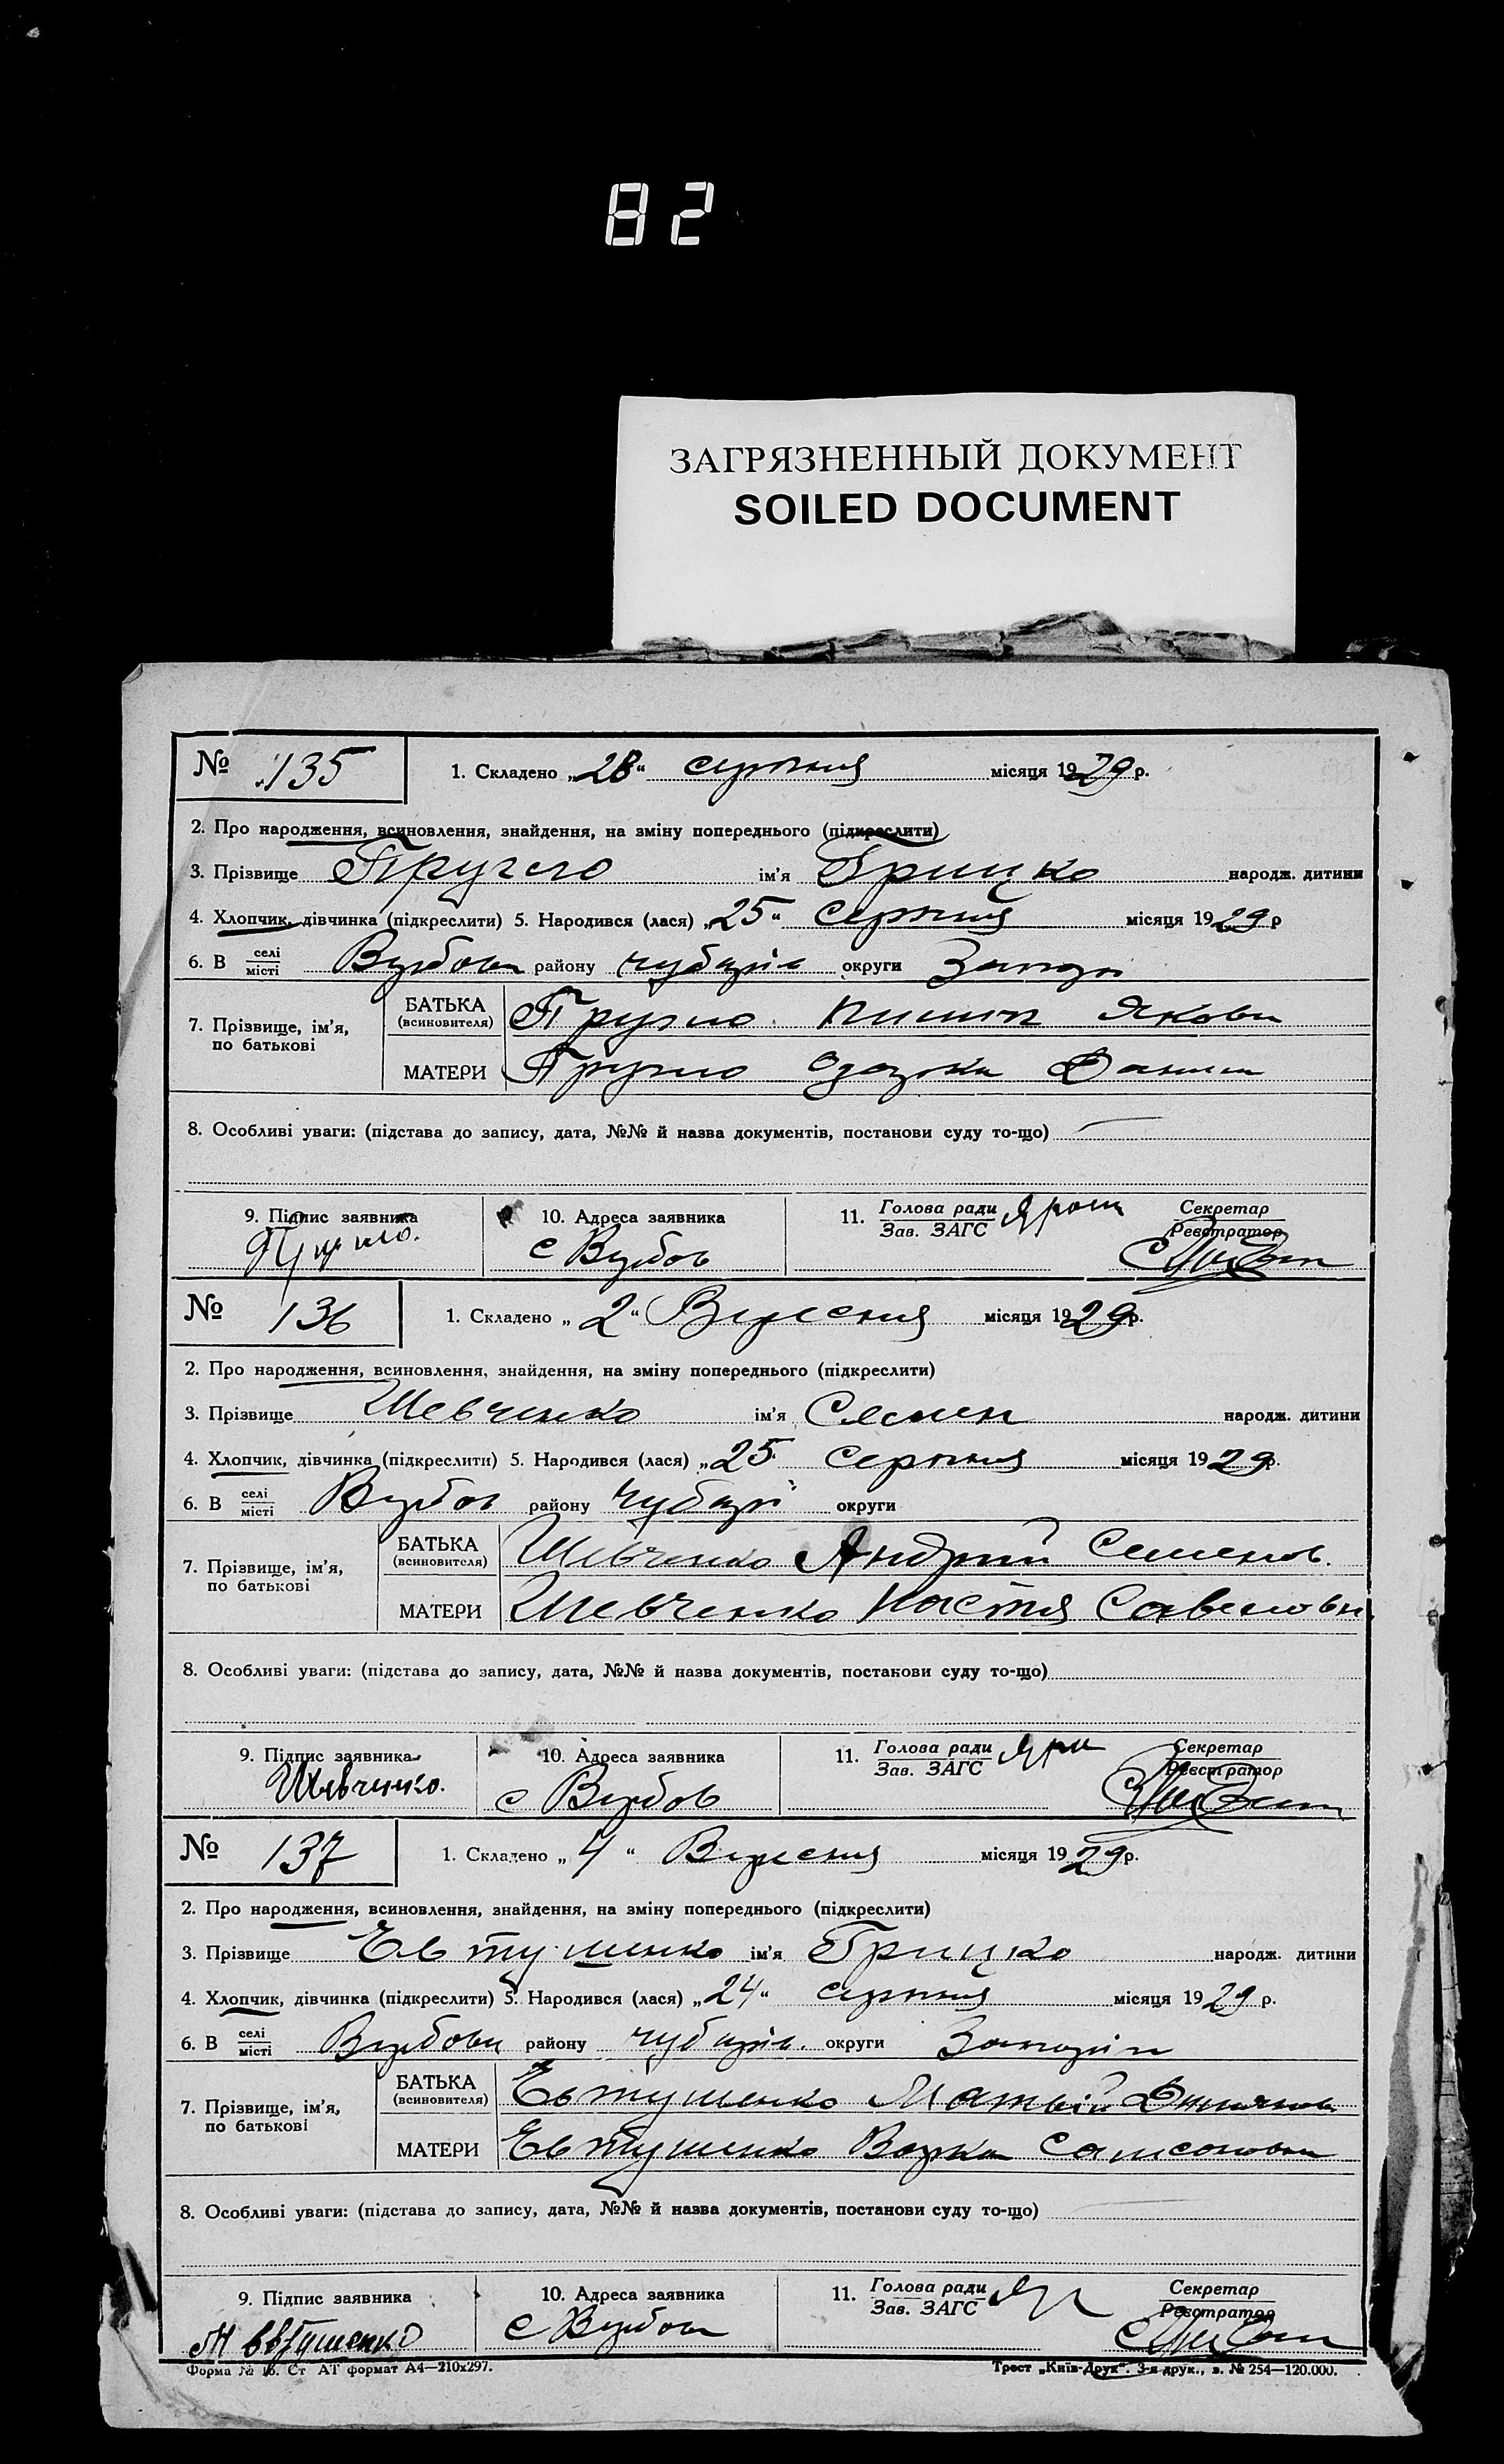 82
ЗАГРЯЗНЕННЫЙ ДОКУМЕНТ
SOILED DOCUMENT
№ 135 1. Складено „28“ серпня місяця 1929 р.
2. Про народження, всиновлення, знайдення, на зміну попереднього (підкреслити)
3. Прізвище ім'я Грицко народж. дитини
4. Хлопчик, дівчинка (підкреслити) 5. Народився (лася) „25“ серпня місяця 1929 р
6. В селі місті Вербова району чубарів округи
7. Прізвище, ім'я, по батькові
БАТЬКА (всиновителя) Пилип Якови
МАТЕРИ
8. Особливі уваги: (підстава до запису, дата, №№ й назва документів, постанови суду то-що)
9. Підпис заявника 10. Адреса заявника 11. Голова ради Зав. ЗАГС Секретар Реєстратор
с Вербов
№ 136 1. Складено „2“ Вересня місяця 1929 р.
2. Про народження, всиновлення, знайдення, на зміну попереднього (підкреслити)
3. Прізвище Шевченко ім'я Семен народж. дитини
4. Хлопчик, дівчинка (підкреслити) 5. Народився (лася) „25 серпня місяця 1929 р.
6. В селі місті Вербов району чубарі округи
7. Прізвище, ім'я, по батькові
БАТЬКА (всиновителя) Шевченко Андрий Семенов.
МАТЕРИ Шевченко Настя Савеловн
8. Особливі уваги: (підстава до запису, дата, №№ й назва документів, постанови суду то-що)
9. Підпис заявника 10. Адреса заявника 11. Голова ради Зав. ЗАГС Секретар Реєстратор
Шевченко. с Вербов
№ 137 1. Складено „4“ Вересня місяця 1929 р.
2. Про народження, всиновлення, знайдення, на зміну попереднього (підкреслити)
3. Прізвище Евтушенко ім'я Грицко народж. дитини
4. Хлопчик, дівчинка (підкреслити) 5. Народився (лася) „24“ серпня місяця 1929 р.
6. В селі місті Вербови району чубарів. округи
7. Прізвище, ім'я, по батькові
БАТЬКА (всиновителя) Евтушенко Матвій
МАТЕРИ Евтушенко Варка Самсонови
8. Особливі уваги: (підстава до запису, дата, №№ й назва документів, постанови суду то-що)
9. Підпис заявника 10. Адреса заявника 11. Голова ради Зав. ЗАГС Секретар Реєстратор
М Евтушенко с Вербов
Форма № 16. Ст АТ формат А4—210х297. Трест „Київ-Друк“. 3-я друк., з. № 254—120.000.